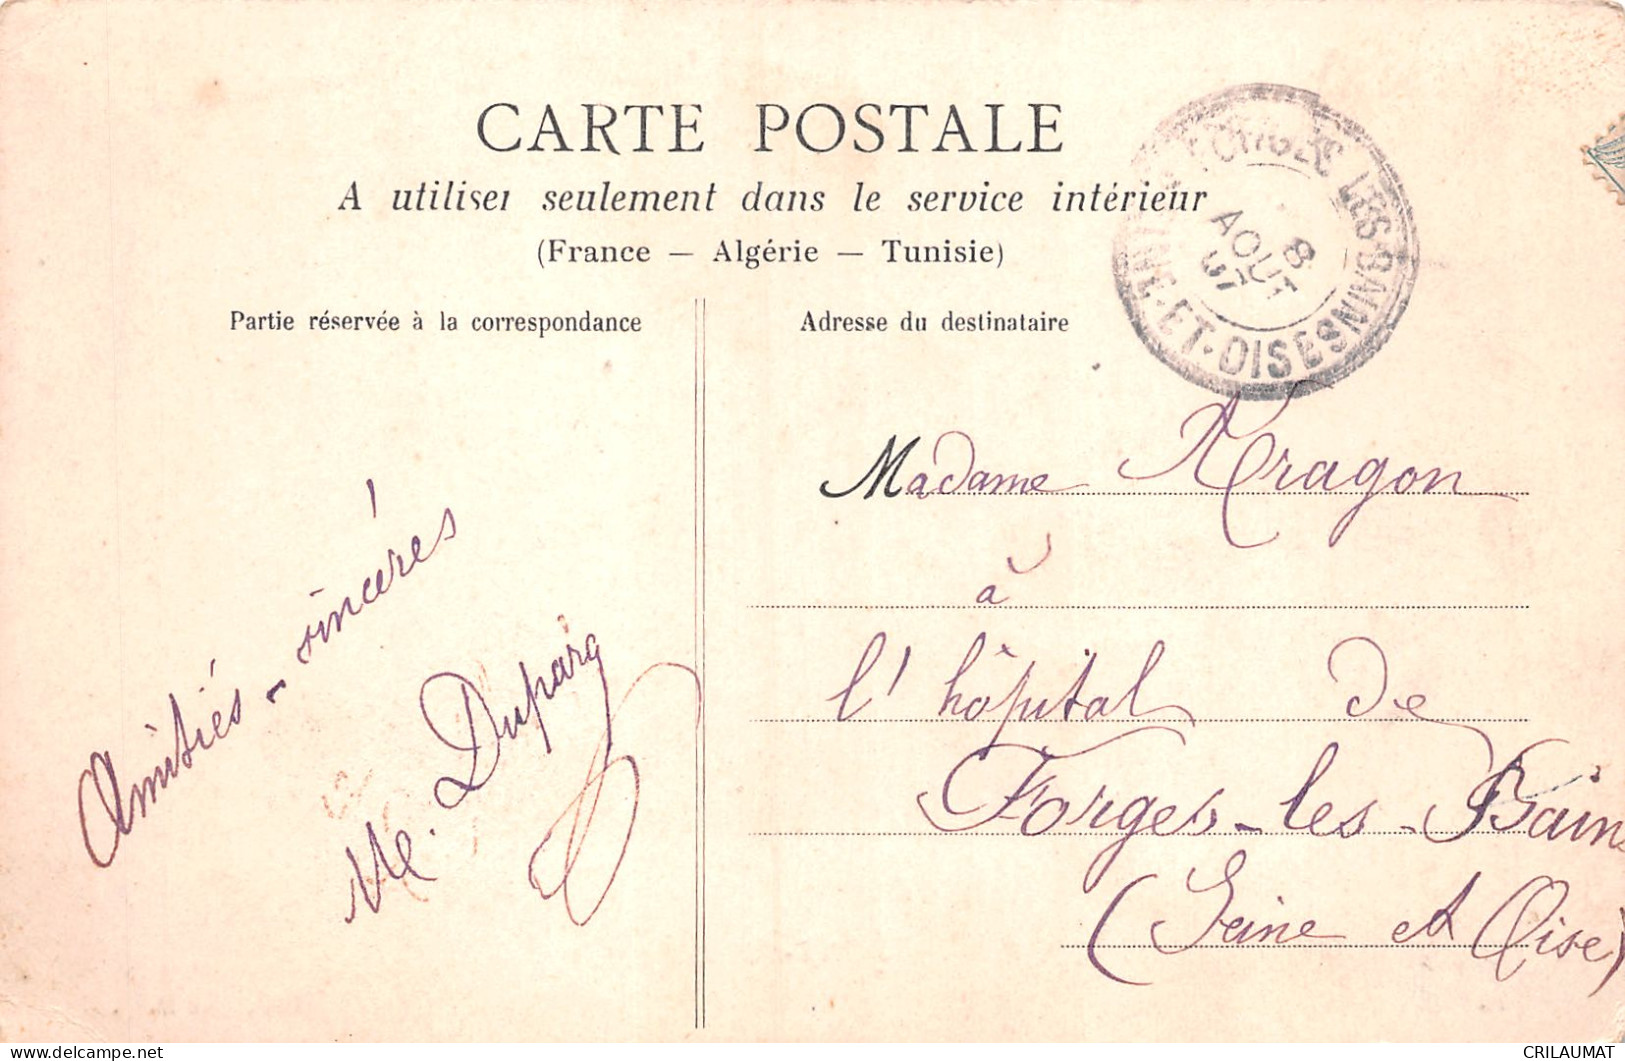 CARTE POSTALE
A utiliser seulement dans le service intérieur
(France — Algérie — Tunisie)
Partie réservée à la correspondance
Adresse du destinataire
FORGES-LES-BAINS
SEINE-ET-OISE
8
AOUT
07
Amitiés - sincères
Me. Duparq
Madame Aragon
à
l'hôpital de
Forges-les-Bains
(Seine et Oise)
CRILAUMAT